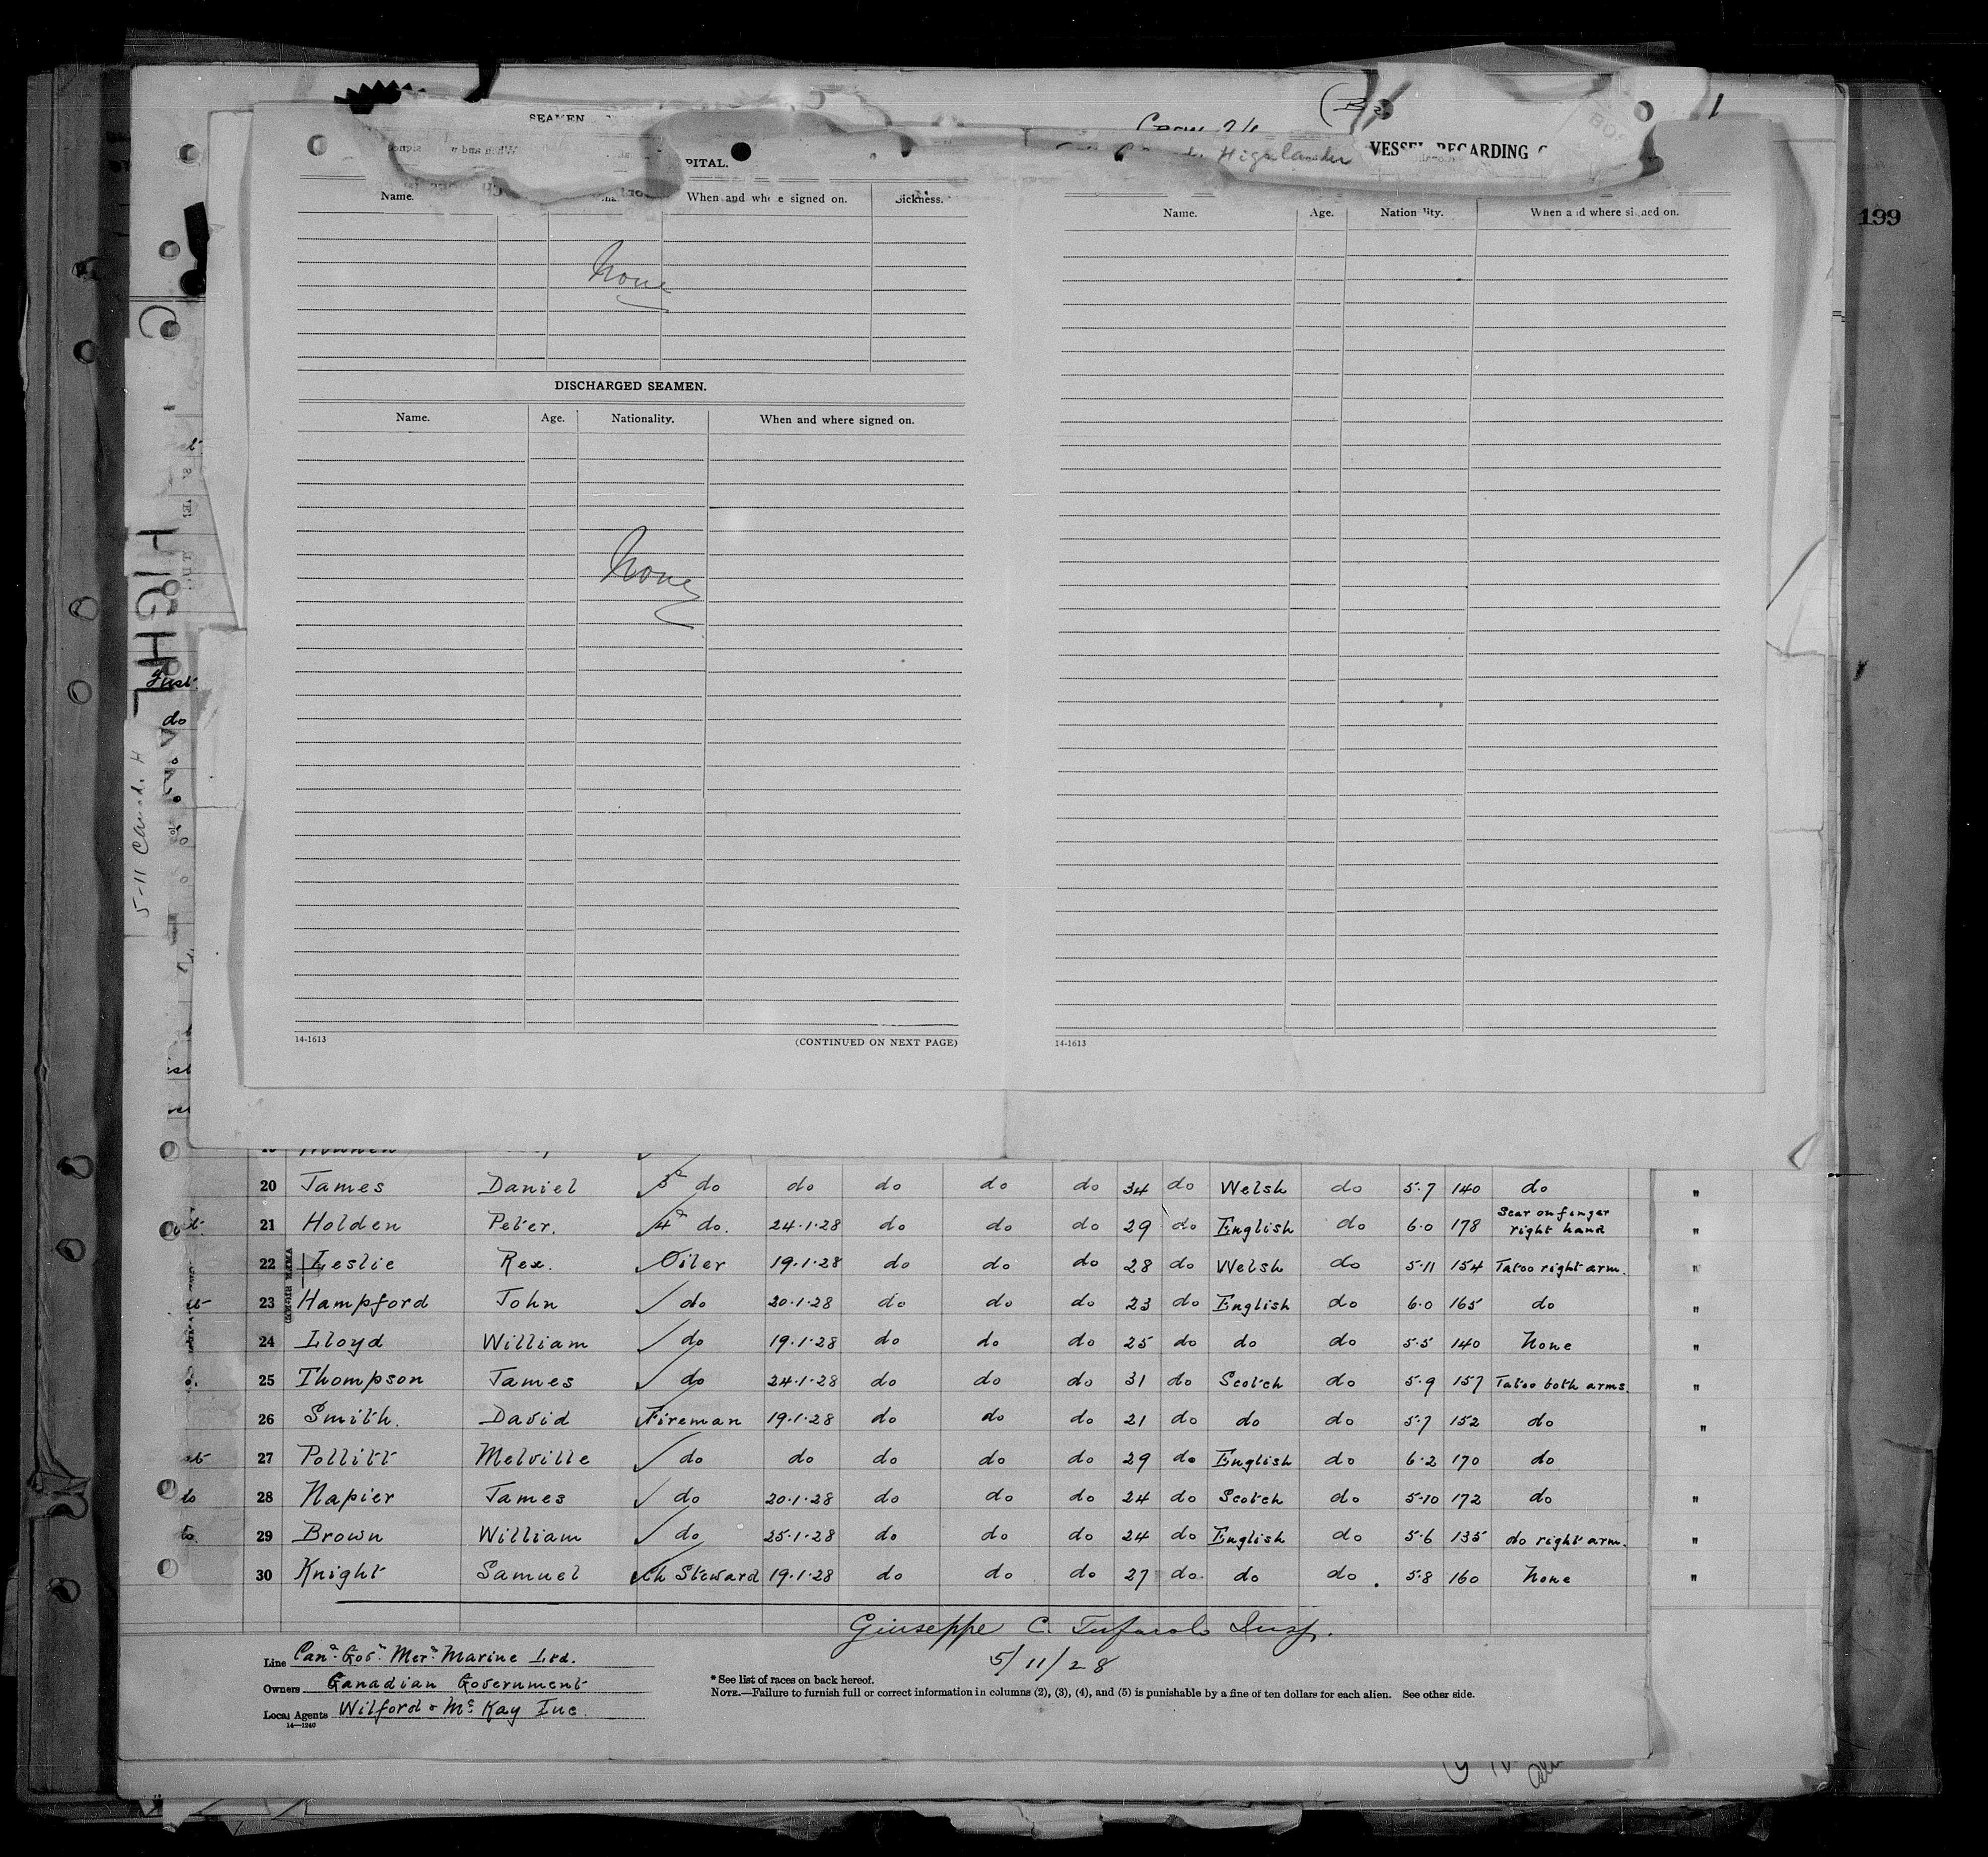 SEAMEN
PITAL.
Highlander
VESSEL REGARDING
199
Name. When and where signed on. Sickness.
None
DISCHARGED SEAMEN.
Name. Age. Nationality. When and where signed on.
None
14-1613 (CONTINUED ON NEXT PAGE)
Name. Age. Nationality. When and where signed on.
14-1613
HIGHL
20 James Daniel 3d do do do do do 34 do Welsh do 5·7 140 do "
21 Holden Peter. 4th do. 24·1·28 do do do 29 do English do 6·0 178 Scar on finger right hand "
22 Leslie Rex. Oiler 19·1·28 do do do 28 do Welsh do 5·11 154 Tatoo right arm. "
23 Hampford John do 20·1·28 do do do 23 do English do 6·0 165 do "
24 Lloyd William do 19·1·28 do do do 25 do do do 5·5 140 None "
25 Thompson James do 24·1·28 do do do 31 do Scotch do 5·9 157 Tatoo both arms. "
26 Smith. David Fireman 19·1·28 do do do 21 do do do 5·7 152 do "
27 Pollitt Melville do do do do do 29 do English do 6·2 170 do
28 Napier James do 20·1·28 do do do 24 do Scotch do 5·10 172 do "
29 Brown William do 25·1·28 do do do 24 do English do 5·6 135 do right arm. "
30 Knight Samuel Ch Steward 19·1·28 do do do 27 do do do 5·8 160 None "
Giuseppe C. Tufarolo Insp.
5/11/28
Line Can. Gov. Mer. Marine Ltd.
Owners Canadian Government
Local Agents Wilford & Mc Kay Inc
14—1240
* See list of races on back hereof.
NOTE.—Failure to furnish full or correct information in columns (2), (3), (4), and (5) is punishable by a fine of ten dollars for each alien. See other side.